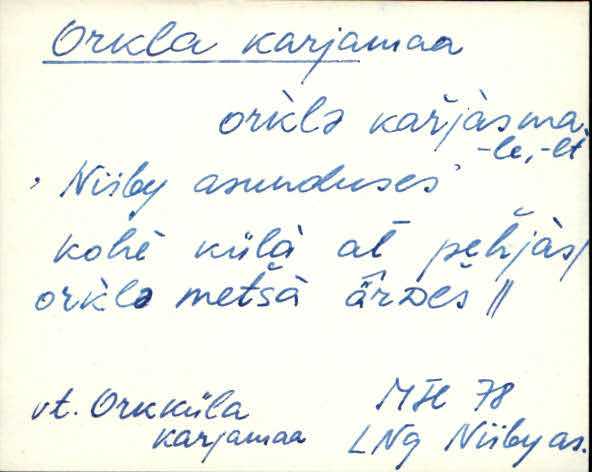 Orkla karjamaa
ork̀lə kařjàsma,
-le, -lt
, Niiby asunduses
kohè külà at̄ pehjàs/
ork̀lə metšà ärDeš //
vt. Orkküla
karjamaa
MH 78
LNg Niiby as.